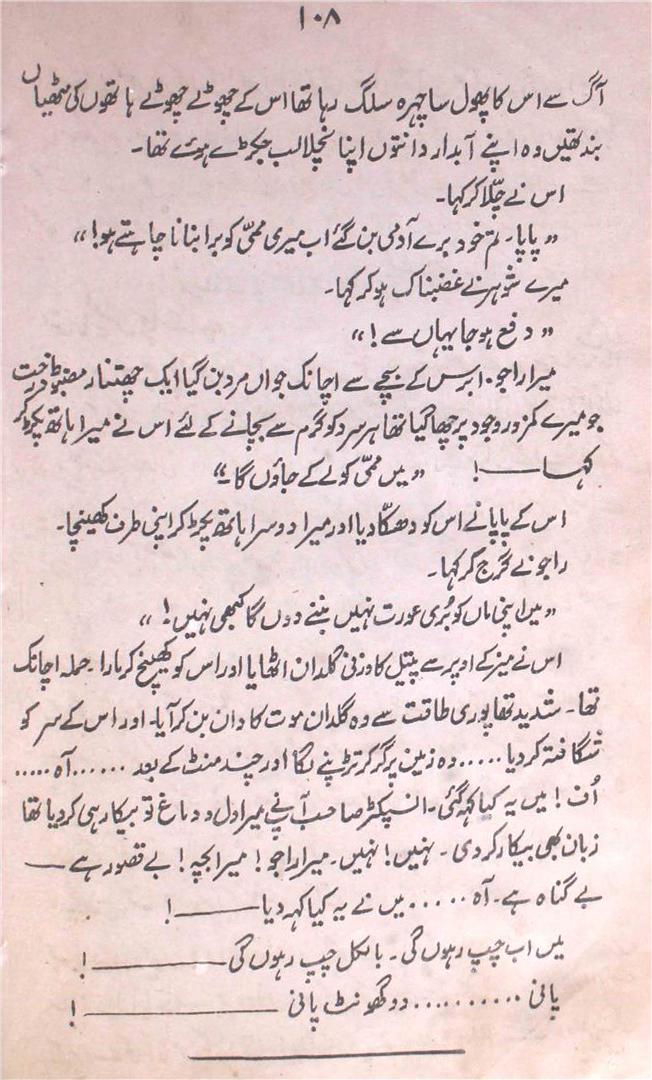 ۱۰۸
آگ سے اس کا پھول سا چہرہ سلگ رہا تھا اس کے چھوٹے چھوٹے ہاتھوں کی مٹھیاں
بند تھیں وہ اپنے آبدار دانتوں اپنا نچلا لب جکڑے ہوئے تھا۔
اس نے چلّا کر کہا۔
”پاپا۔ تم خود برے آدمی بن گئے اب میری ممّی کو برا بنانا چاہتے ہو!“
میرے شوہر نے غضبناک ہو کر کہا۔
”دفع ہو جا یہاں سے!“
میرا راجو ۱۰ برس کے بچے سے اچانک جواں مرد بن گیا ایک چھتنار مضبوط درخت
جو میرے کمزور وجود پر چھا گیا تھا ہر سرد و گرم سے بچانے کے لئے اس نے میرا ہاتھ پکڑ کر
کہا ——! ”میں ممّی کو لے کے جاؤں گا۔“
اس کے پاپا نے اس کو دھکّا دیا اور میرا دوسرا ہاتھ پکڑ کر اپنی طرف کھینچا۔
راجو نے گرج کر کہا۔
”میں اپنی ماں کو بُری عورت نہیں بننے دوں گا کبھی نہیں!“
اس نے میز کے اوپر سے پیتل کا وزنی گلدان اٹھایا اور اس کو کھینچ کر مارا۔ حملہ اچانک
تھا۔ شدید تھا پوری طاقت سے وہ گلدان موت کا دان بن کر آیا۔ اور اس کے سر کو
شگافتہ کر دیا ..... وہ زمین پر گر کر تڑپنے لگا اور چند منٹ کے بعد ...... آہ .....
اُف! میں یہ کیا کہہ گئی۔ انسپکٹر صاحب آپ نے میرا دل و دماغ تو بیکار ہی کر دیا تھا
زبان بھی بیکار کر دی۔ نہیں! نہیں۔ میرا راجو! میرا بچہ! بے قصور ہے ——
بے گناہ ہے۔ آہ ..... میں نے یہ کیا کہہ دیا ——!
میں اب چپ رہوں گی۔ بالکل چپ رہوں گی ——!
پانی .......... دو گھونٹ پانی ——!